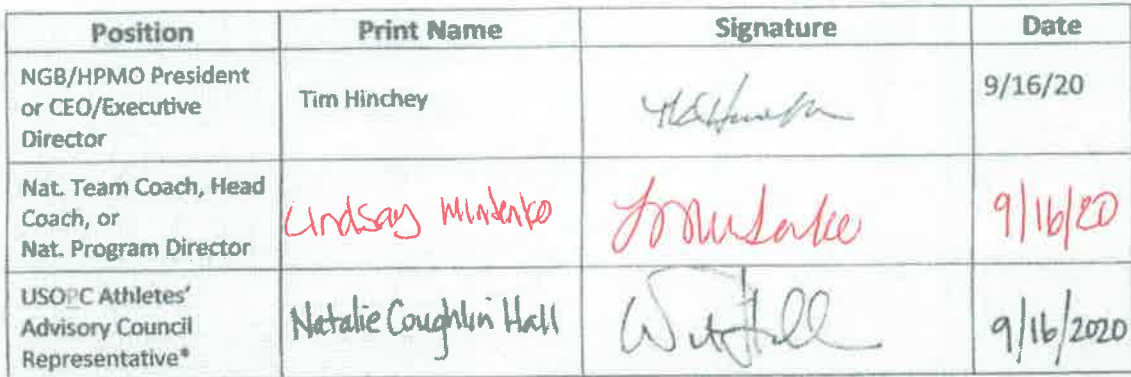 Position Print Name Signature Date
NGB/HPMO President
or CEO/Executive
Director
Tim Hinchey
9/16/20
Nat. Team Coach, Head
Coach, or
Nat. Program Director
Lindsay Mintenko
9/16/20
USOPC Athletes'
Advisory Council
Representative*
Natalie Coughlin Hall
9/16/2020